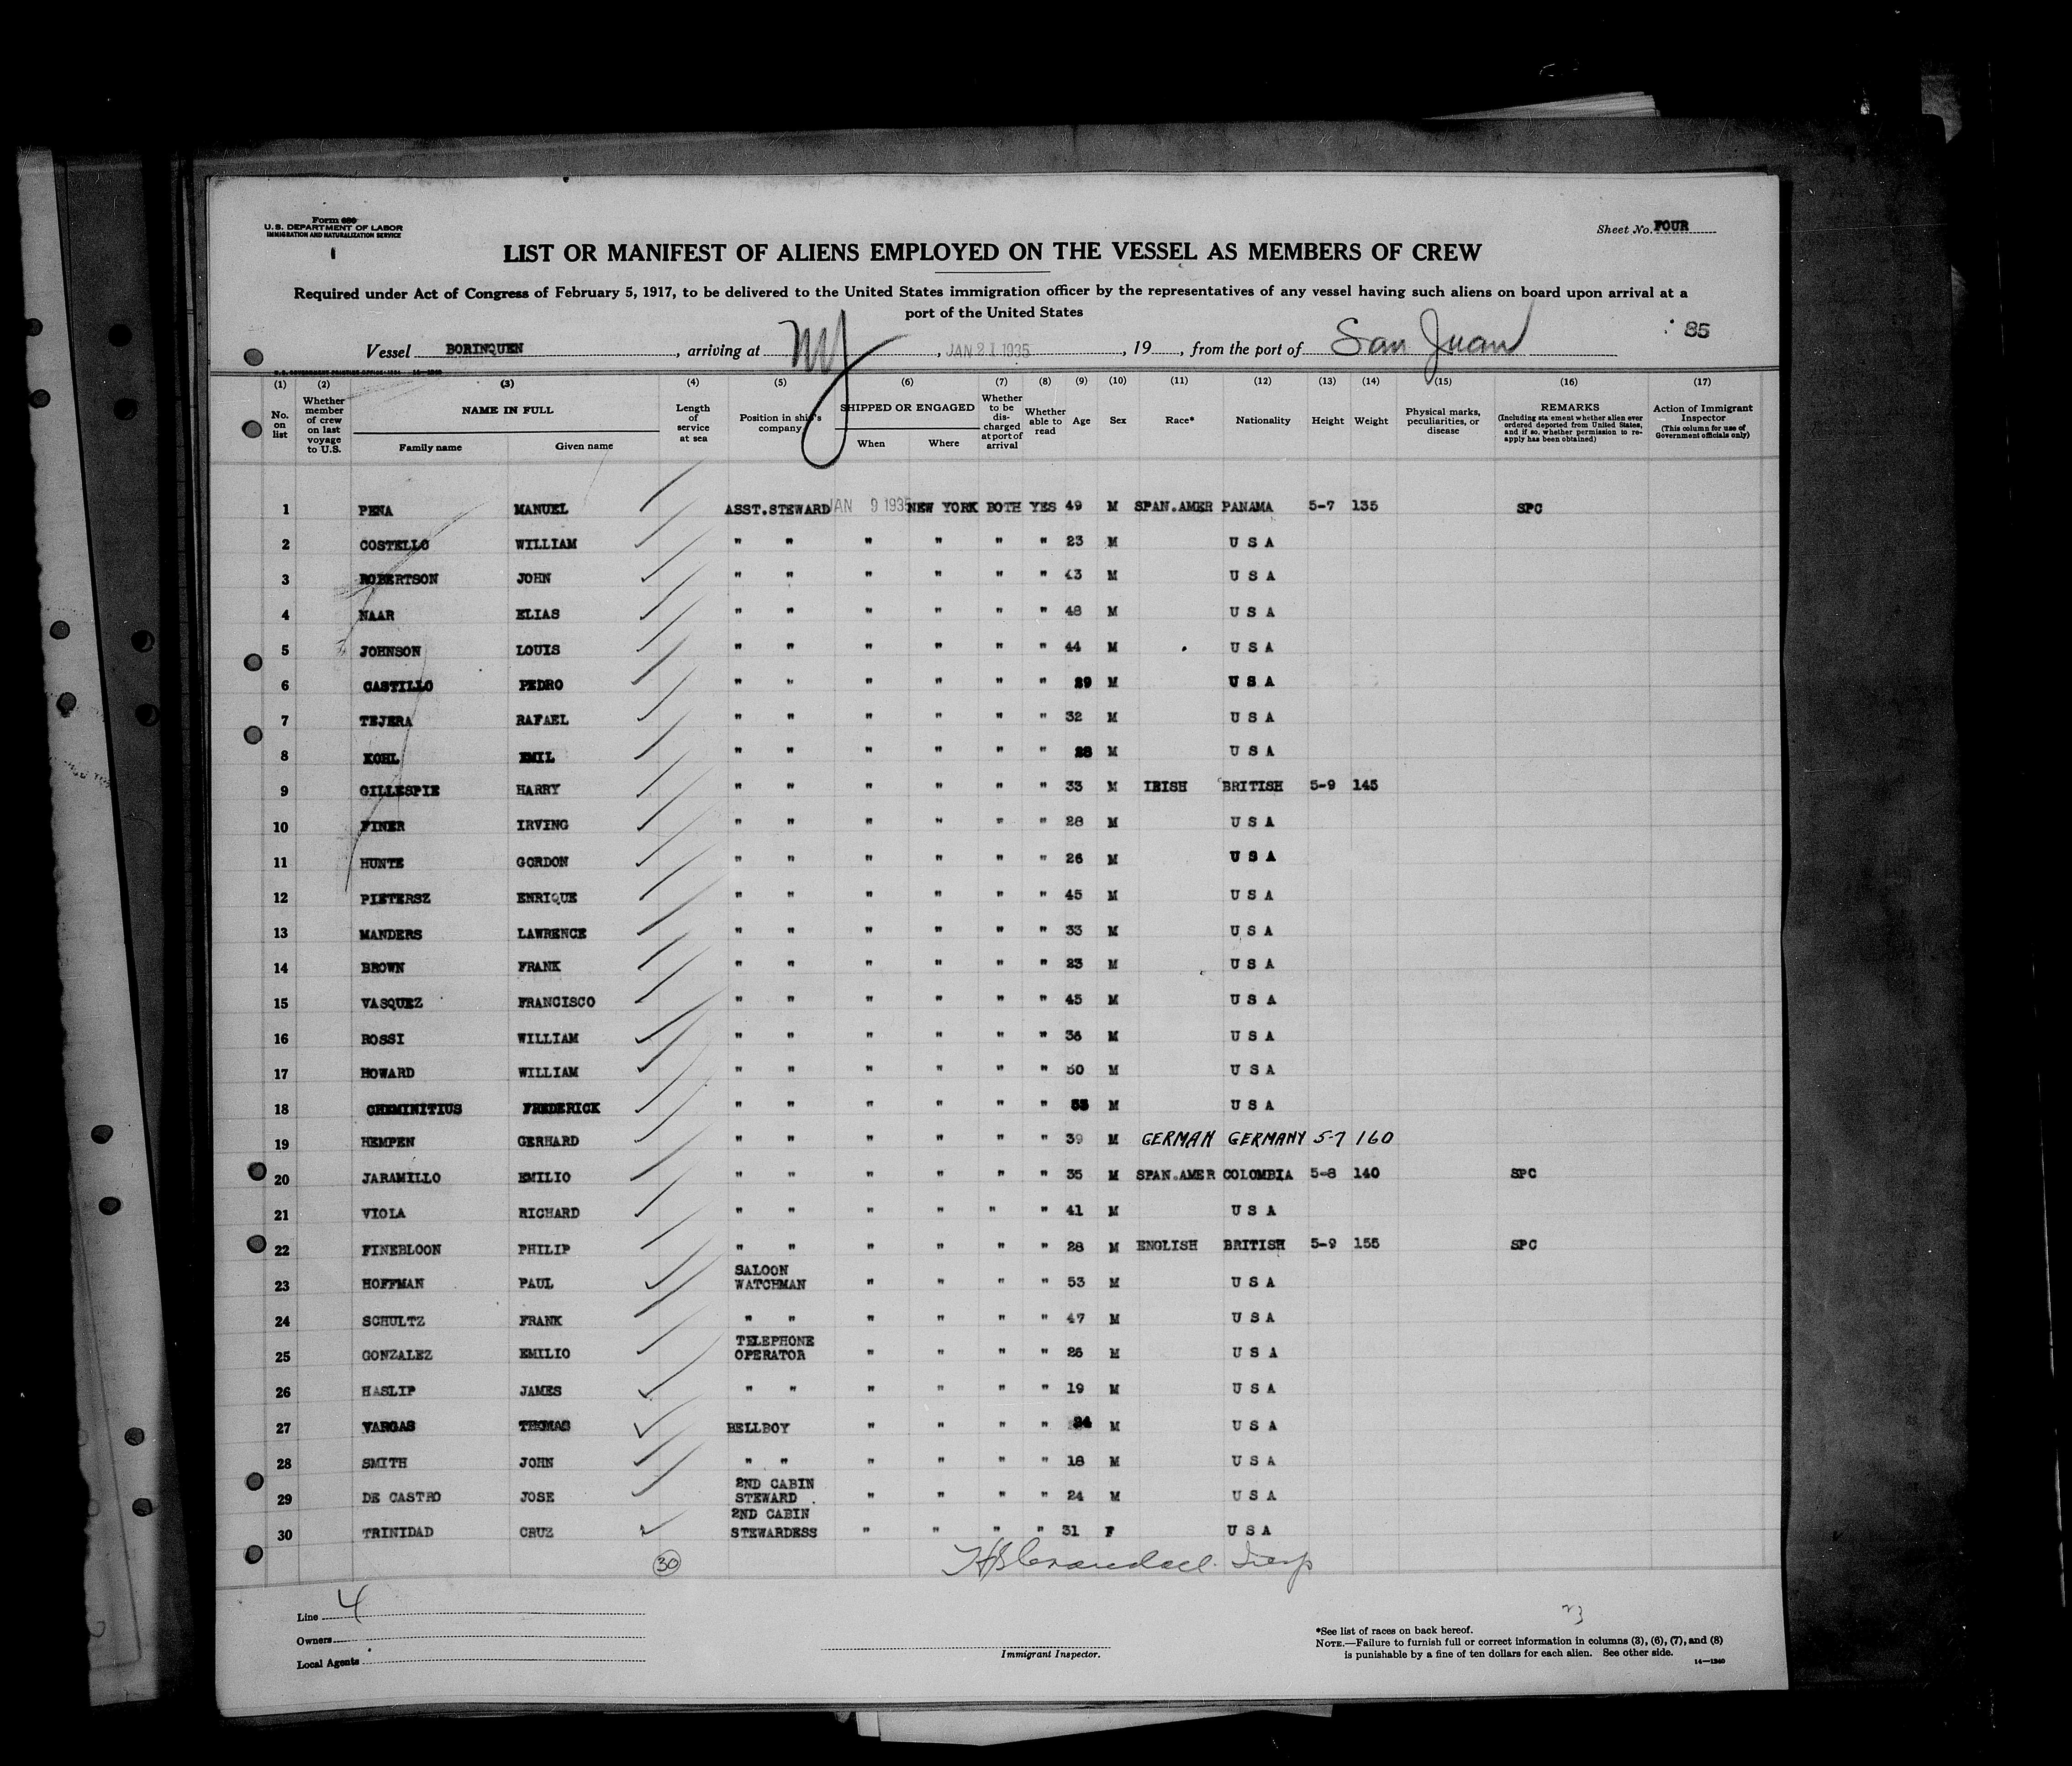 Form 680
U.S. DEPARTMENT OF LABOR
IMMIGRATION AND NATURALIZATION SERVICE
1
Sheet No. FOUR
LIST OR MANIFEST OF ALIENS EMPLOYED ON THE VESSEL AS MEMBERS OF CREW
Required under Act of Congress of February 5, 1917, to be delivered to the United States immigration officer by the representatives of any vessel having such aliens on board upon arrival at a
port of the United States
85
Vessel BORINQUEN, arriving at NY, JAN 21 1935, 19, from the port of San Juan
(1) (2) (3) (4) (5) (6) (7) (8) (9) (10) (11) (12) (13) (14) (15) (16) (17)
No. on list
Whether member of crew on last voyage to U.S.
NAME IN FULL
Family name Given name
Length of service at sea
Position in ship's company
SHIPPED OR ENGAGED
When Where
Whether to be discharged at port of arrival
Whether able to read
Age
Sex
Race*
Nationality
Height
Weight
Physical marks, peculiarities, or disease
REMARKS
(Including statement whether alien ever ordered deported from United States, and if so, whether permission to reapply has been obtained)
Action of Immigrant Inspector
(This column for use of Government officials only)
1 PENA MANUEL ASST.STEWARD JAN 9 1935 NEW YORK BOTH YES 49 M SPAN.AMER PANAMA 5-7 135 SPC
2 COSTELLO WILLIAM " " " " " " 23 M U S A
3 ROBERTSON JOHN " " " " " " 43 M U S A
4 NAAR ELIAS " " " " " " 48 M U S A
5 JOHNSON LOUIS " " " " " " 44 M U S A
6 CASTILLO PEDRO " " " " " " 29 M U S A
7 TEJERA RAFAEL " " " " " " 32 M U S A
8 KOHL EMIL " " " " " " 28 M U S A
9 GILLESPIE HARRY " " " " " " 33 M IRISH BRITISH 5-9 145
10 FINER IRVING " " " " " " 28 M U S A
11 HUNTE GORDON " " " " " " 26 M U S A
12 PIETERSZ ENRIQUE " " " " " " 45 M U S A
13 MANDERS LAWRENCE " " " " " " 33 M U S A
14 BROWN FRANK " " " " " " 23 M U S A
15 VASQUEZ FRANCISCO " " " " " " 45 M U S A
16 ROSSI WILLIAM " " " " " " 36 M U S A
17 HOWARD WILLIAM " " " " " " 50 M U S A
18 CHEMINITIUS FREDERICK " " " " " " M U S A
19 HEMPEN GERHARD " " " " " " 39 M GERMAN GERMANY 5-7 160
20 JARAMILLO EMILIO " " " " " " 35 M SPAN.AMER COLOMBIA 5-8 140 SPC
21 VIOLA RICHARD " " " " " " 41 M U S A
22 FINEBLOON PHILIP " " " " " " 28 M ENGLISH BRITISH 5-9 155 SPC
23 HOFFMAN PAUL SALOON WATCHMAN " " " " 53 M U S A
24 SCHULTZ FRANK " " " " " " 47 M U S A
25 GONZALEZ EMILIO TELEPHONE OPERATOR " " " " 26 M U S A
26 HASLIP JAMES " " " " " " 19 M U S A
27 VARGAS THOMAS BELLBOY " " " " 24 M U S A
28 SMITH JOHN " " " " " " 18 M U S A
29 DE CASTRO JOSE 2ND CABIN STEWARD " " " " 24 M U S A
30 TRINIDAD CRUZ 2ND CABIN STEWARDESS " " " " 31 F U S A
30
Line 4
Owners
Local Agents
Immigrant Inspector.
23
*See list of races on back hereof.
NOTE.—Failure to furnish full or correct information in columns (3), (6), (7), and (8)
is punishable by a fine of ten dollars for each alien. See other side.
14—1240